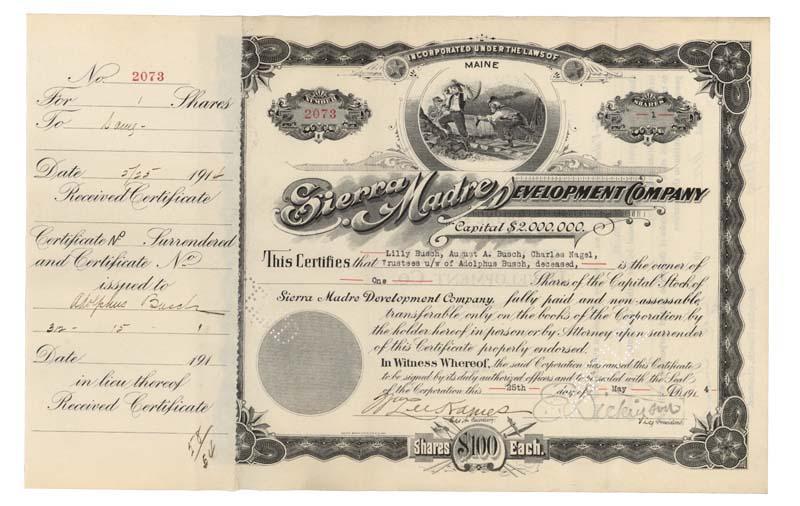 No. 2073
For 1 Shares
To Same -
Date 5/25 1914
Received Certificate
Certificate No Surrendered
and Certificate No
issued to
Adolphus Busch
312- 15 - 1
Date 191
in lieu thereof
Received Certificate
INCORPORATED UNDER THE LAWS OF
MAINE
NUMBER
2073
SHARES
-1-
Sierra Madre DEVELOPMENT COMPANY
Capital $2,000,000.
This Certifies that Lilly Busch, August A. Busch, Charles Nagel,
Trustees u/w of Adolphus Busch, deceased, is the owner of
One Shares of the Capital Stock of
Sierra Madre Development Company, fully paid and non-assessable,
transferable only on the books of the Corporation by
the holder hereof in person or by Attorney upon surrender
of this Certificate properly endorsed.
In Witness Whereof, the said Corporation has caused this Certificate
to be signed by its duly authorized officers and to be sealed with the Seal
of the Corporation this 25th day of May A.D. 1914
Dickinson
Vice President
Shares $100 Each.